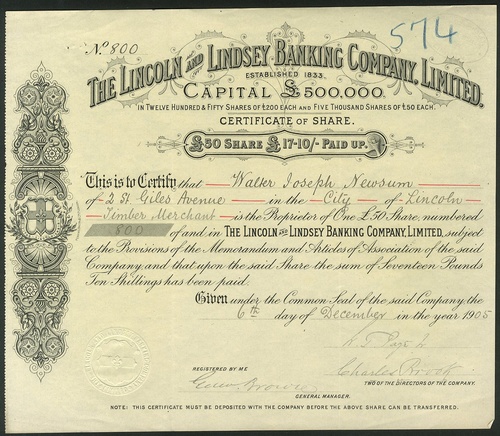 574
No. 800
THE LINCOLN AND LINDSEY BANKING COMPANY, LIMITED.
ESTABLISHED 1833.
CAPITAL £500,000.
IN TWELVE HUNDRED & FIFTY SHARES OF £200 EACH AND FIVE THOUSAND SHARES OF £50 EACH.
CERTIFICATE OF SHARE.
£50 SHARE £17-10/- PAID UP.
This is to Certify that Walter Joseph Newsum
of 2 St Giles Avenue in the City of Lincoln
Timber Merchant is the Proprietor of One £50 Share, numbered
800 of and in THE LINCOLN AND LINDSEY BANKING COMPANY, LIMITED, subject
to the Provisions of the Memorandum and Articles of Association of the said
Company and that upon the said Share the sum of Seventeen Pounds
Ten Shillings has been paid.
Given under the Common Seal of the said Company the
6th day of December in the year 1905
REGISTERED BY ME
Charles Brook
TWO OF THE DIRECTORS OF THE COMPANY.
GENERAL MANAGER.
NOTE: THIS CERTIFICATE MUST BE DEPOSITED WITH THE COMPANY BEFORE THE ABOVE SHARE CAN BE TRANSFERRED.